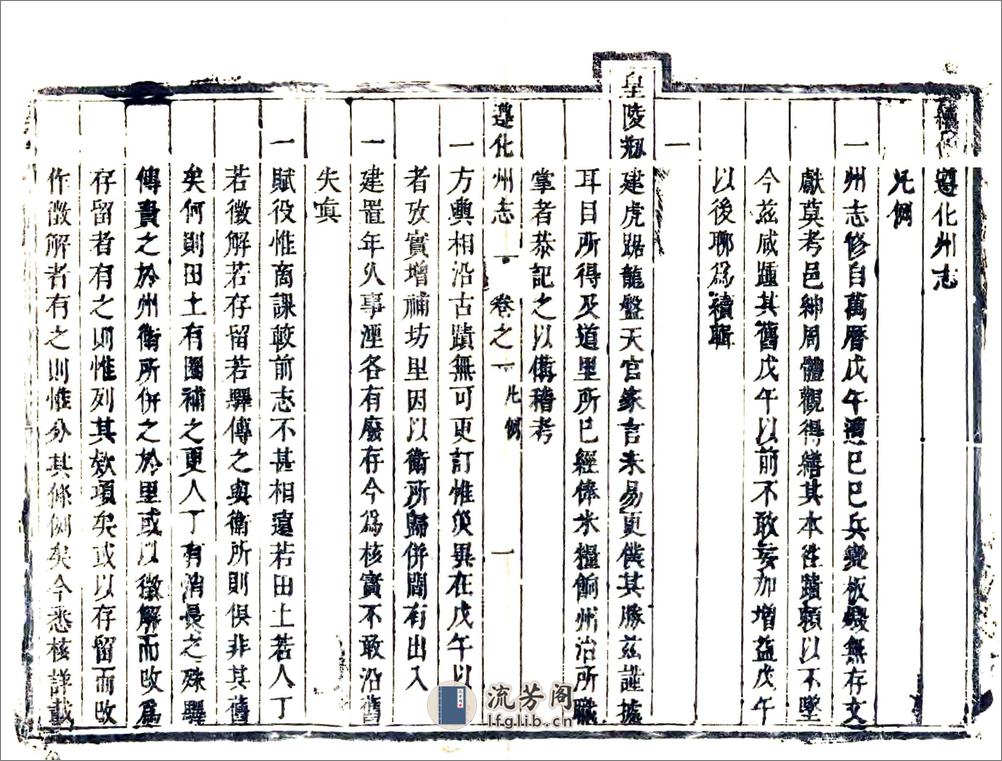 續修遵化州志
凡例
一州志修自萬曆戊午遭己巳兵變板燬無存文
獻莫考邑紳周體觀得繕其本往蹟賴以不墜
今茲咸踵其舊戊午以前不敢妄加增益戊午
以後聊爲續輯
一
皇陵剏建虎踞龍盤天官家言未易更僕其勝茲謹據
耳目所得及道里所已經俸米糧餉州治所職
掌者恭記之以備稽考
遵化州志 卷之一 凡例 一
一方輿相沿古蹟無可更訂惟災異在戊午以
者攷實增補坊里因以衛所歸併間有出入
一建置年久事湮各有廢存今爲核實不敢沿舊
失眞
一賦役惟商課較前志不甚相遠若田土若人丁
若徵解若存留若驛傳之與衛所則俱非其舊
矣何則田土有圈補之更人丁有消長之殊驛
傳責之於州衛所併之於里或以徵解而攺爲
存留者有之則惟列其欵項矣或以存留而攺
作徵解者有之則惟分其條例矣今悉核詳載
流芳阁
lfglib.cn